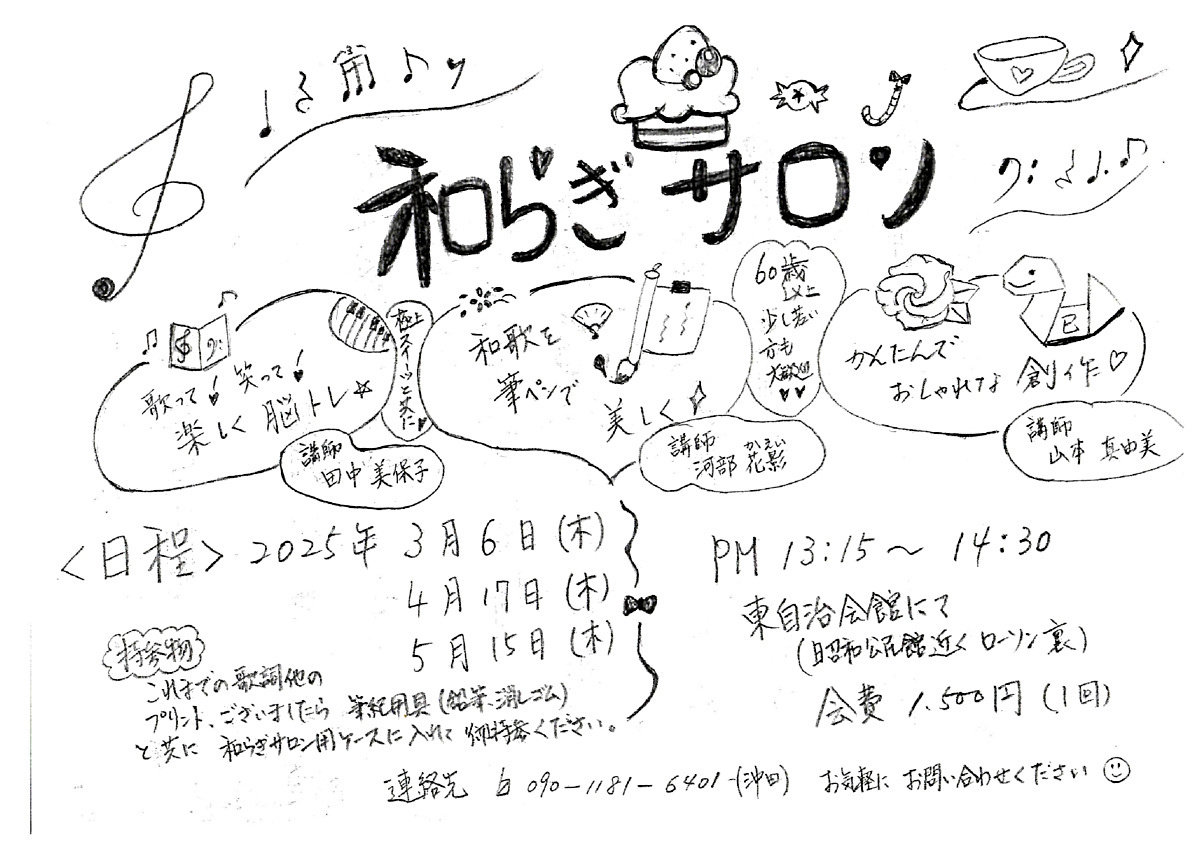 和らぎサロン
歌って! 笑って!
楽しく 脳トレ☆
極上スイーツと共に
講師
田中 美保子
和歌を
筆ペンで
美しく
60歳
以上
少し若い
方も
大歓迎
講師 かえい
河部 花影
かんたんで
おしゃれな 創作♡
巳
講師
山本 真由美
<日程> 2025年 3月6日(木)
4月17日(木)
5月15日(木)
PM 13:15〜14:30
東自治会館にて
(昭和公民館近く ローソン裏)
会費 1.500円(1回)
持参物
これまでの歌詞他の
プリント、ございましたら 筆紀用具(鉛筆、消しゴム)
と共に 和らぎサロン用ケースに入れて 御持参ください。
連絡先 090-1181-6401(沖田) お気軽に お問い合わせください